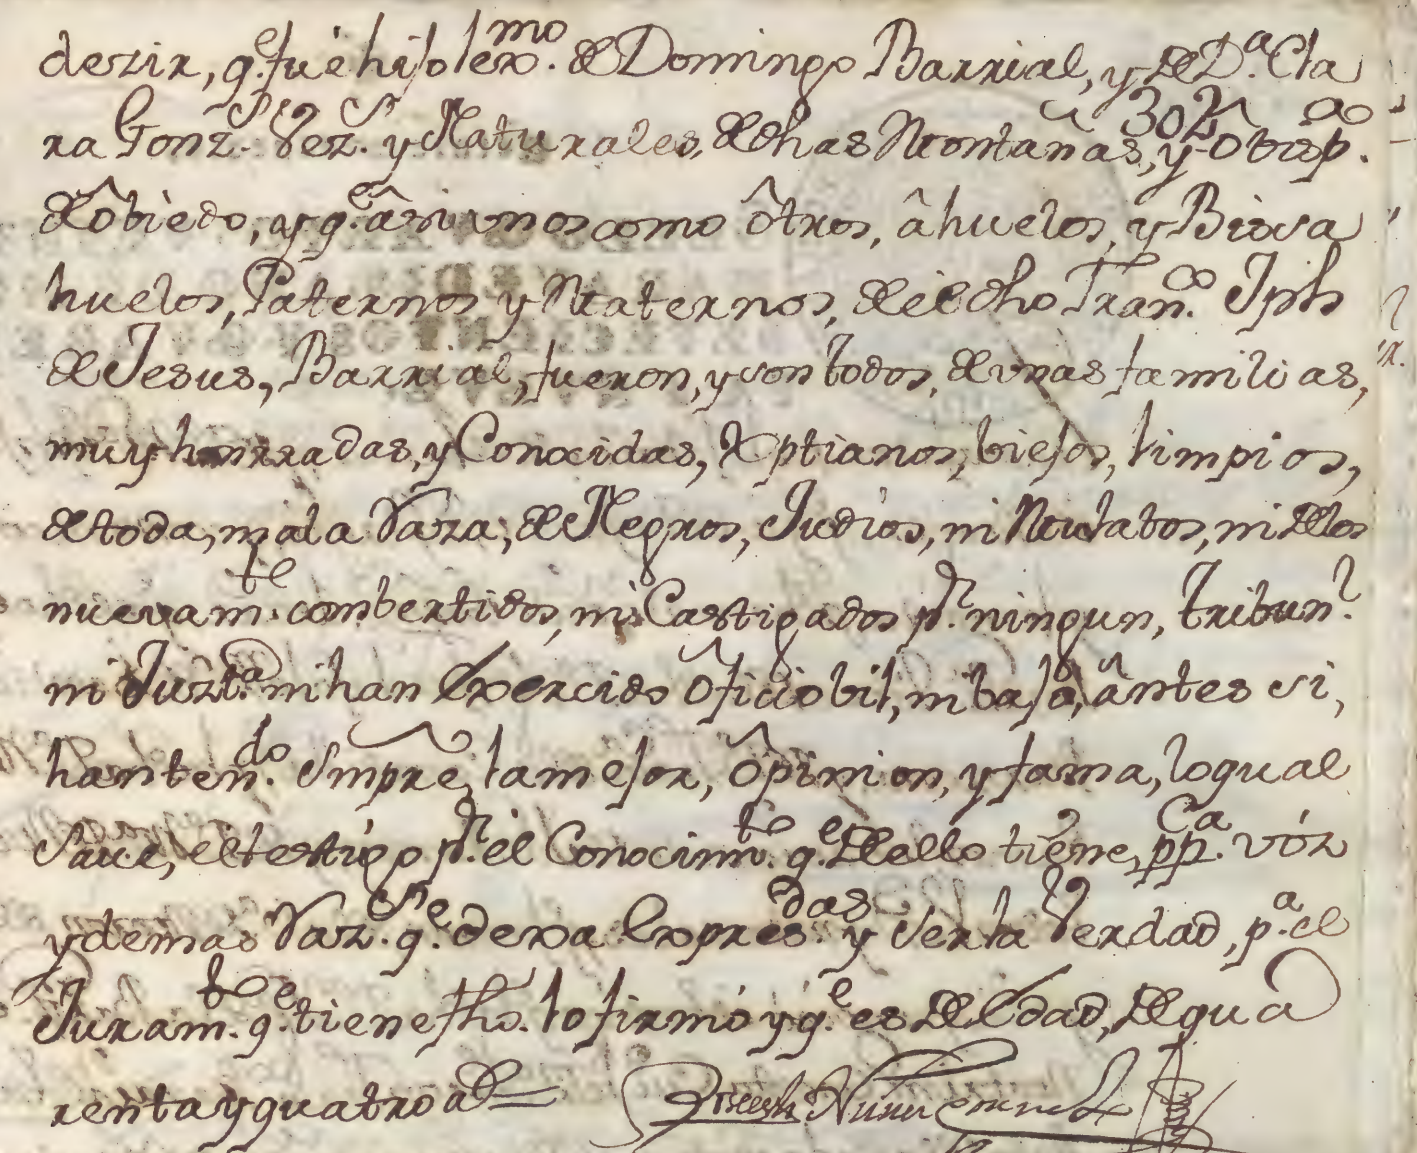 dezir, q.e fué hijo lexmo. de Domingo Barrial, y de D.a Cla
302
ra Gonz.s Vez.s y Naturales, de dhas Montañas, y Obisp.do
de Ôbiedo, y q.e âsi unos como ôtros, âhuelos, y Bisa
huelos, Paternos y Maternos, de el dho Fran.co Jph
de Jesus, Barrial, fueron, y son todos, de unas familias,
muy honrradas, y Conocidas, Xptianos, biejos, limpios,
de toda, mala Raza, de Negros, Judios, ni Mulatos, ni de los
nuevam.te combertidos, ni Castigados p.r ningun, tribun.l
ni Juzt.a ni han Exercido ôficio bil, ni bajo, ântes si,
han ten.do Smpre, la mejor, ôpinion, y fama, lo qual
Save, el testigo p.r el Conocim.to q.e de ello tiene, pp.ca vóz
y demas Raz.s q.e dexa Expres.das y ser la Verdad, p.a el
Juram.to q.e tiene fho. lo firmó y q.e es de Edad, de qua
renta y quatro a.s